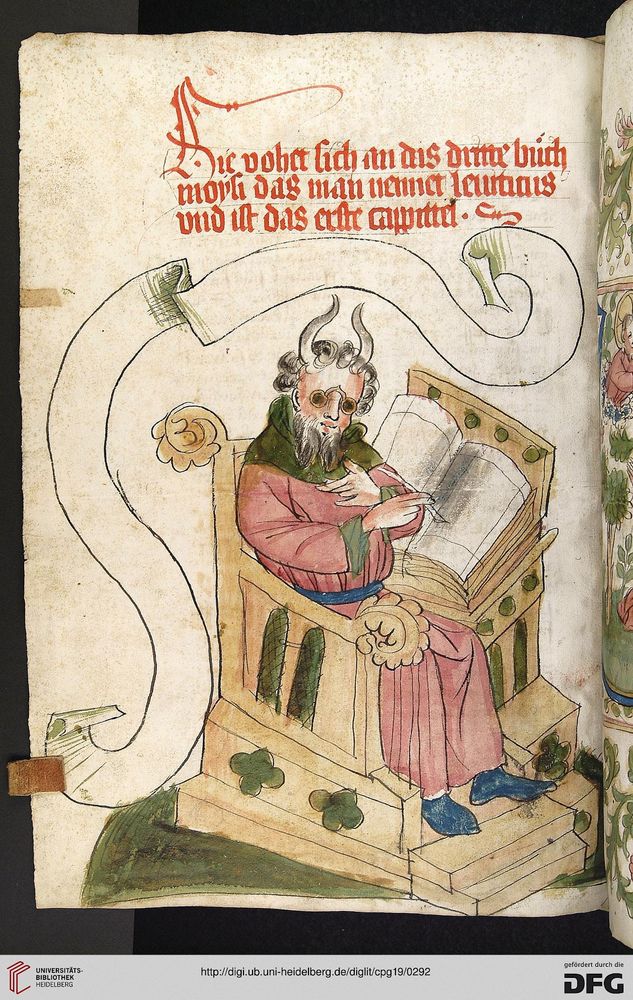 Hie vohet sich an das dritte büch
moysi das man nennet leuiticus
vnd ist das erste cappittel .
UNIVERSITÄTS-
BIBLIOTHEK
HEIDELBERG
http://digi.ub.uni-heidelberg.de/diglit/cpg19/0292
gefördert durch die
DFG